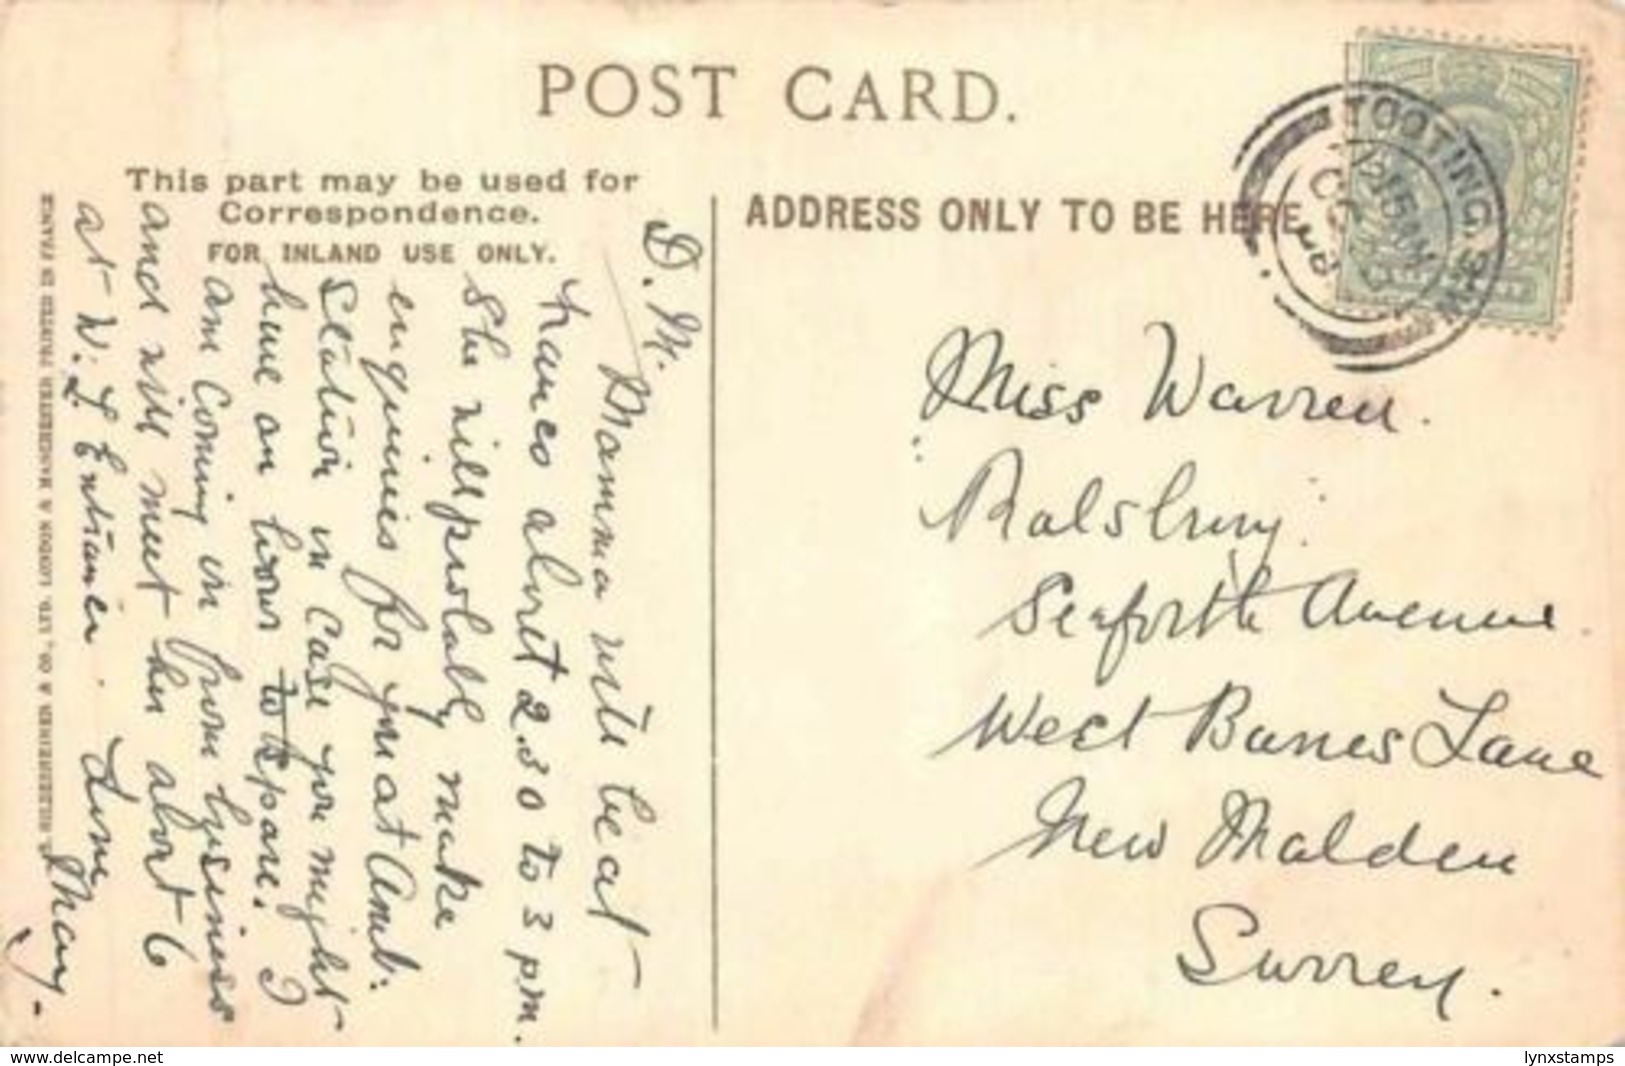 POST CARD.
This part may be used for
Correspondence.
FOR INLAND USE ONLY.
ADDRESS ONLY TO BE HERE
TOOTING. S.W.
12 15 AM
OC
08
D. M.
Mamma will be at
Frances about 2.30 to 3 pm.
She will probably make
enquiries for you at Amb:
Station in case you might
have an hour to spare. I
am coming in from business
and will meet her about 6
at W. L Entrance.
Love
May.
Miss Warren.
Ralsbury
Seaforth Avenue
West Barnes Lane
New Malden
Surrey.
HILDESHEIMER & CO., LTD. LONDON & MANCHESTER PRINTED IN FRANCE
www.delcampe.net
lynxstamps